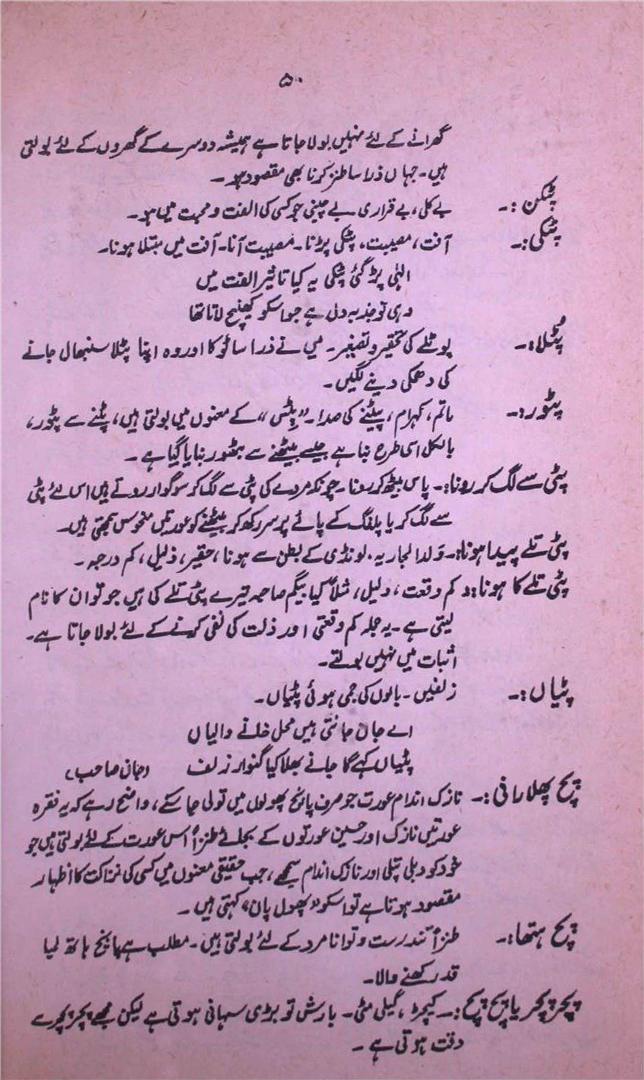 ۵۰
گھرانے کے لئے نہیں بولا جاتا ہے ہمیشہ دوسرے کے گھروں کے لئے بولتی
ہیں۔ جہاں ذرا سا طنز کرنا بھی مقصود ہو۔
پٹکن :۔ بے کلی، بے قراری بے چینی جو کسی کی الفت و محبت میں ہو۔
پٹکی :۔ آفت، مصیبت، پٹکی پڑنا۔ مصیبت آنا۔ آفت میں مبتلا ہونا۔
الٰہی پڑ گئی پٹکی یہ کیا تاثیر الفت میں
وہی تو جذبہ دل ہے جو اسکو کھینچ لاتا تھا
پُٹلا :۔ پوٹلے کی تحقیر و تصغیر۔ میں نے ذرا سا ٹوکا اور وہ اپنا پٹلا سنبھال جانے
کی دھمکی دینے لگیں۔
پٹور :۔ ماتم، کہرام، پیٹنے کی صدا۔ "پٹس" کے معنوں میں بولتی ہیں، پٹنے سے پٹور،
بالکل اسی طرح بنا ہے جیسے بیٹھنے سے بٹھور بنایا گیا ہے۔
پٹی سے لگ کر رونا :۔ پاس بیٹھ کر رونا۔ چونکہ مردے کی پٹی سے لگ کر سوگوار روتے ہیں اس لئے پٹی
سے لگ کر یا پلنگ کے پائے پر سر رکھ کر بیٹھنے کو عورتیں منحوس سمجھتی ہیں۔
پٹی تلے پیدا ہونا :۔ ولد الجاریہ۔ لونڈی کے بطن سے ہونا، حقیر، ذلیل، کم درجہ۔
پٹی تلے کا ہونا :۔ کم وقعت، ذلیل، مثلاً کیا بیگم صاحبہ تیرے پٹی تلے کی ہیں جو تو ان کا نام
لیتی ہے۔ یہ جملہ کم وقعتی اور ذلت کی نفی کرنے کے لئے بولا جاتا ہے۔
اثبات میں نہیں بولتے۔
پٹیاں :۔ زلفیں۔ بالوں کی جمی ہوئی پٹیاں۔
اے جان جانتی ہیں محل خانے والیاں
پٹیاں کہے گا جانے بھلا کیا گنوار زلف (جان صاحب)
پچ پھلا رانی :۔ نازک اندام عورت جو صرف پانچ پھولوں میں تولی جا سکے، واضح رہے کہ یہ فقرہ
عورتیں نازک اور حسین عورتوں کے بجائے طنزاً اس عورت کے لئے بولتی ہیں جو
خود کو دبلی پتلی اور نازک اندام سمجھے، جب حقیقی معنوں میں کسی کی نزاکت کا اظہار
مقصود ہوتا ہے تو اسکو "پھول پان" کہتی ہیں۔
پچ ہتھا :۔ طنزاً تندرست و توانا مرد کے لئے بولتی ہیں۔ مطلب ہے پانچ ہاتھ لمبا
قد رکھنے والا۔
پچر پچر یا پچ پچ :۔ کیچڑ، گیلی مٹی۔ بارش تو بڑی سہانی ہوتی ہے لیکن مجھے پچر پچر سے
دقت ہوتی ہے۔